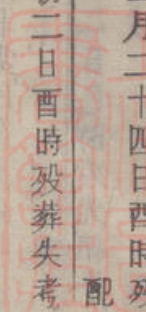 月二十四日酉時殁
配
二日酉時殁葬失考